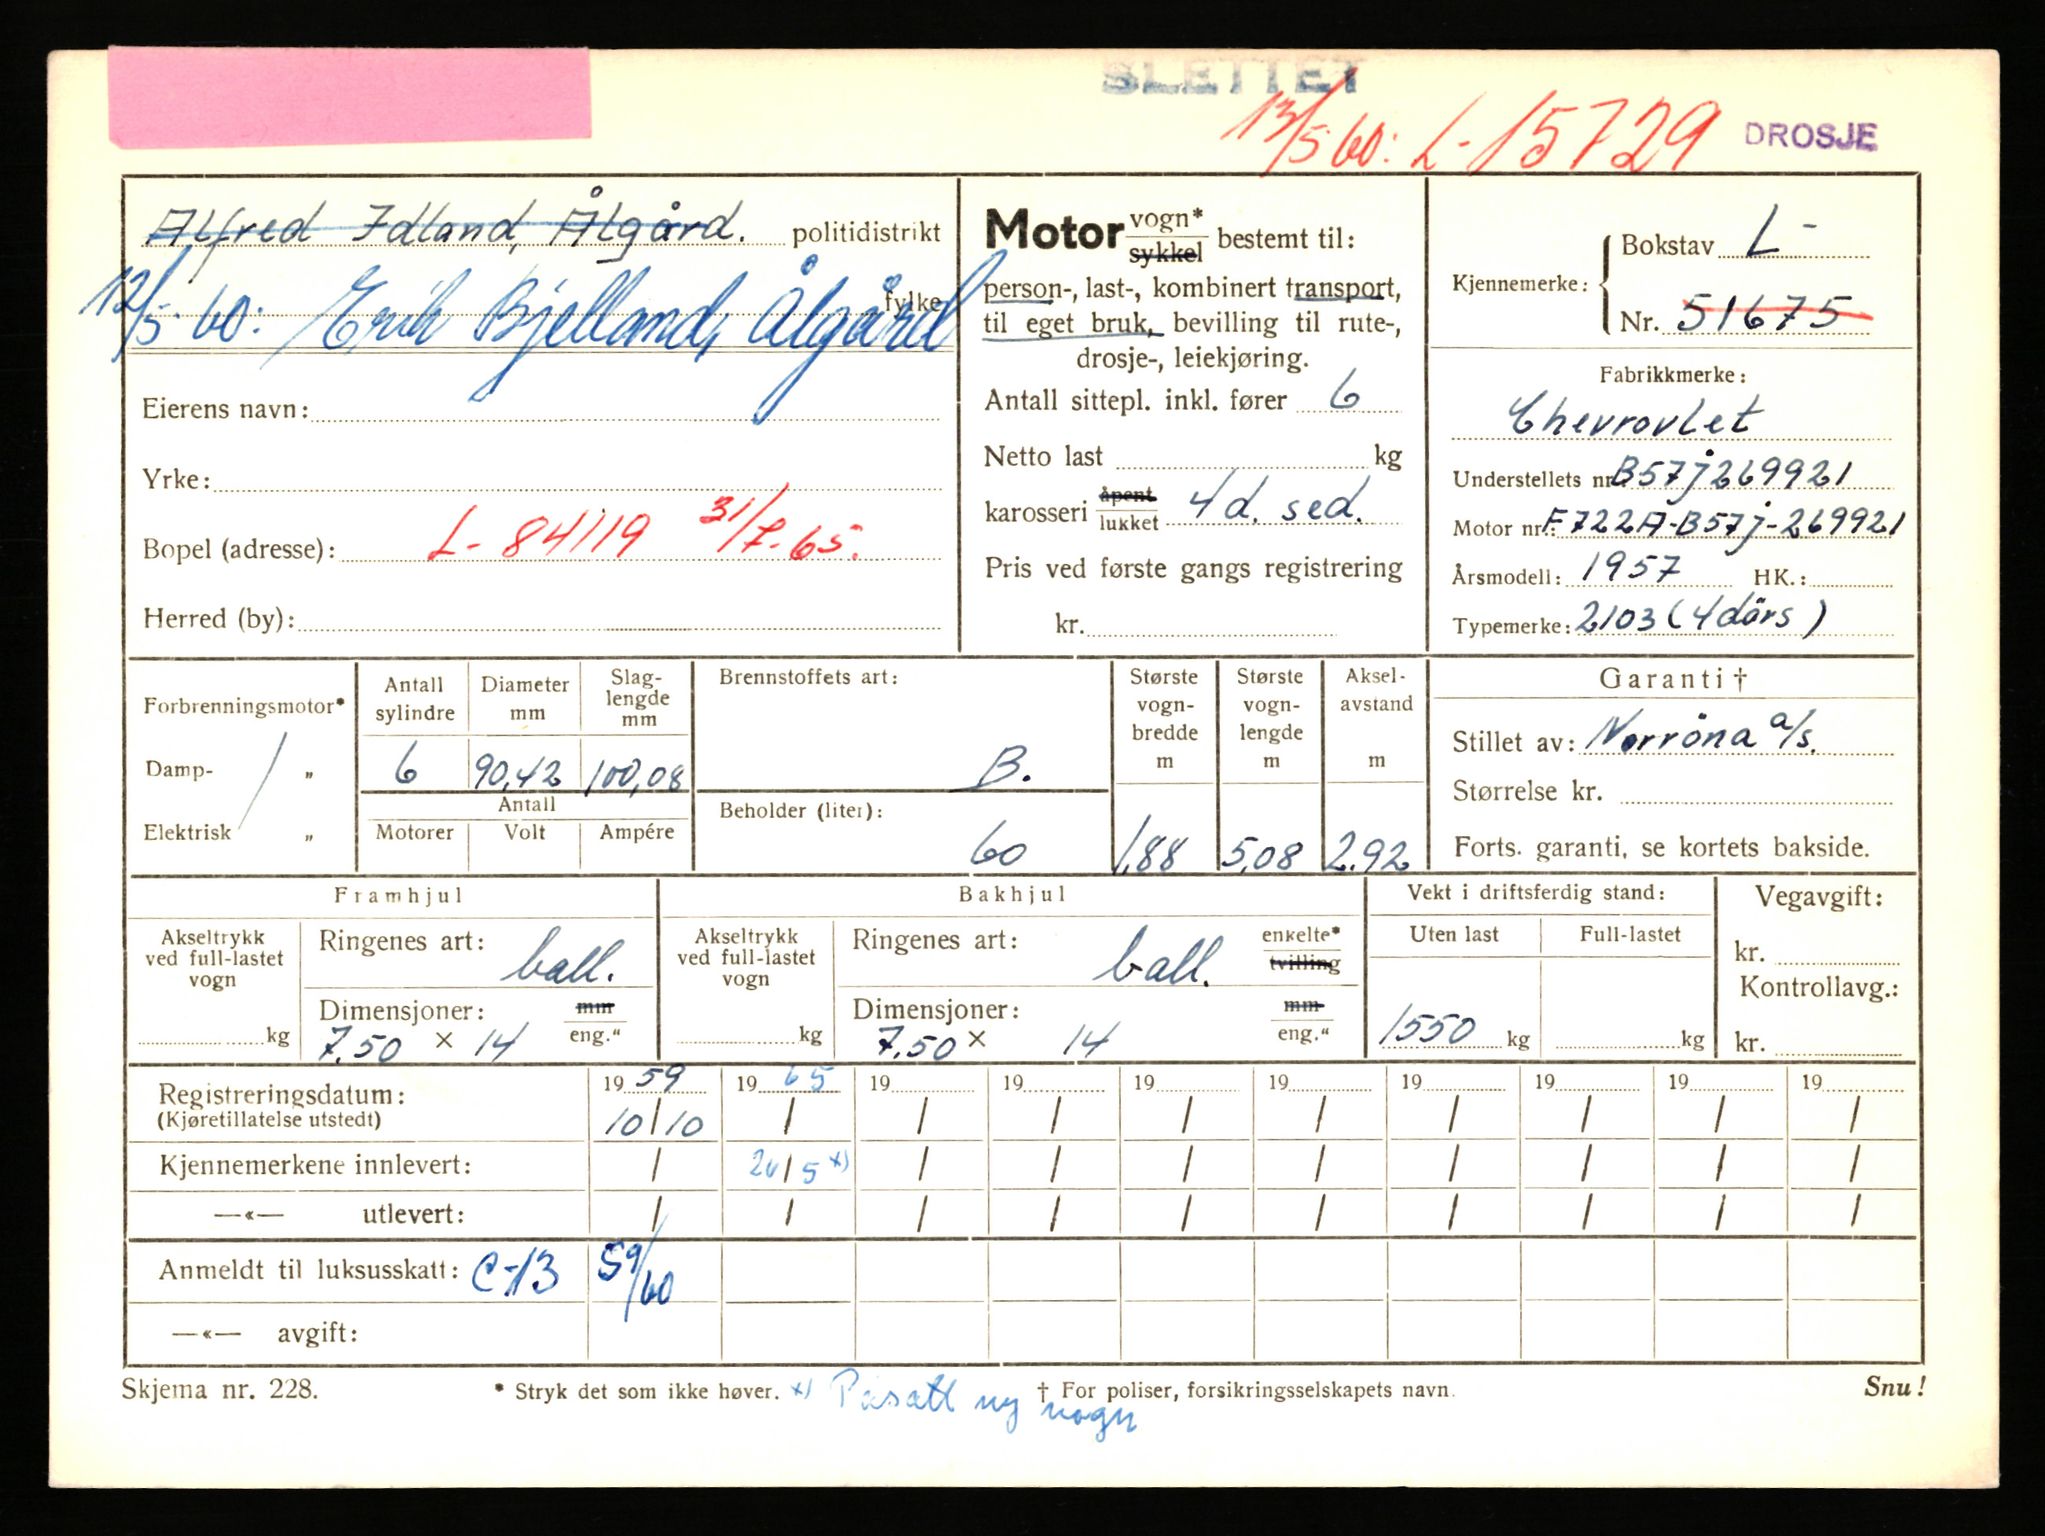 SLETTET
13/5 60: L-15729 DROSJE
Alfred Idland, Ålgård. politidistrikt
12/5-60: Erik Bjelland, Ålgård fylke
Eierens navn:
Yrke:
Bopel (adresse): L-84119 31/7-65.
Herred (by):
Motor vogn* sykkel bestemt til:
person-, last-, kombinert transport,
til eget bruk, bevilling til rute-,
drosje-, leiekjøring.
Antall sittepl. inkl. fører 6
Netto last kg
karosseri åpent lukket 4d. sed.
Pris ved første gangs registrering
kr.
Kjennemerke: Bokstav L-
Nr. 51675
Fabrikkmerke:
Chevrovlet
Understellets nr. B57j269921
Motor nr.: F722A-B57j-269921
Årsmodell: 1957 HK.:
Typemerke: 2103 (4dörs)
Forbrenningsmotor*
Damp- „
Elektrisk „
Antall sylindre Diameter mm Slag-lengde mm
6 90,42 100,08
Antall
Motorer Volt Ampére
Brennstoffets art:
B.
Beholder (liter):
60
Største vogn-bredde m
1,88
Største vogn-lengde m
5,08
Aksel-avstand m
2.92
Garanti †
Stillet av: Norröna a/s.
Størrelse kr.
Forts. garanti, se kortets bakside.
Framhjul
Akseltrykk ved full-lastet vogn
kg
Ringenes art: ball.
Dimensjoner: mm
7.50 × 14 eng."
Bakhjul
Akseltrykk ved full-lastet vogn
kg
Ringenes art: ball. enkelte* tvilling
Dimensjoner: mm
7.50 × 14 eng."
Vekt i driftsferdig stand:
Uten last Full-lastet
1550 kg kg
Vegavgift:
kr.
Kontrollavg.:
kr.
Registreringsdatum: 19 59 19 65 19 19 19 19 19 19 19 19
(Kjøretillatelse utstedt) 10/10 / / / / / / / / /
Kjennemerkene innlevert: / 20/5 x) / / / / / / / /
—«— utlevert: / / / / / / / / / /
Anmeldt til luksusskatt: C-13 59/60
—«— avgift:
Skjema nr. 228. * Stryk det som ikke høver. x) Påsatt ny vogn † For poliser, forsikringsselskapets navn. Snu!